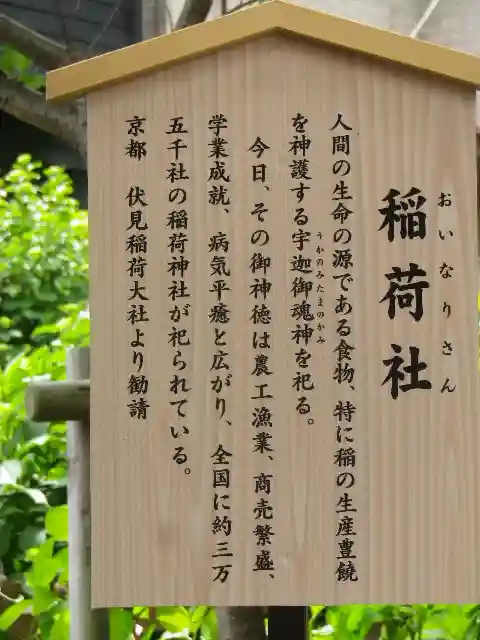 稲荷社
おいなりさん
人間の生命の源である食物、特に稲の生産豊饒
を神護する宇迦御魂神を祀る。
うかのみたまのかみ
今日、その御神徳は農工漁業、商売繁盛、
学業成就、病気平癒と広がり、全国に約三万
五千社の稲荷神社が祀られている。
京都 伏見稲荷大社より勧請